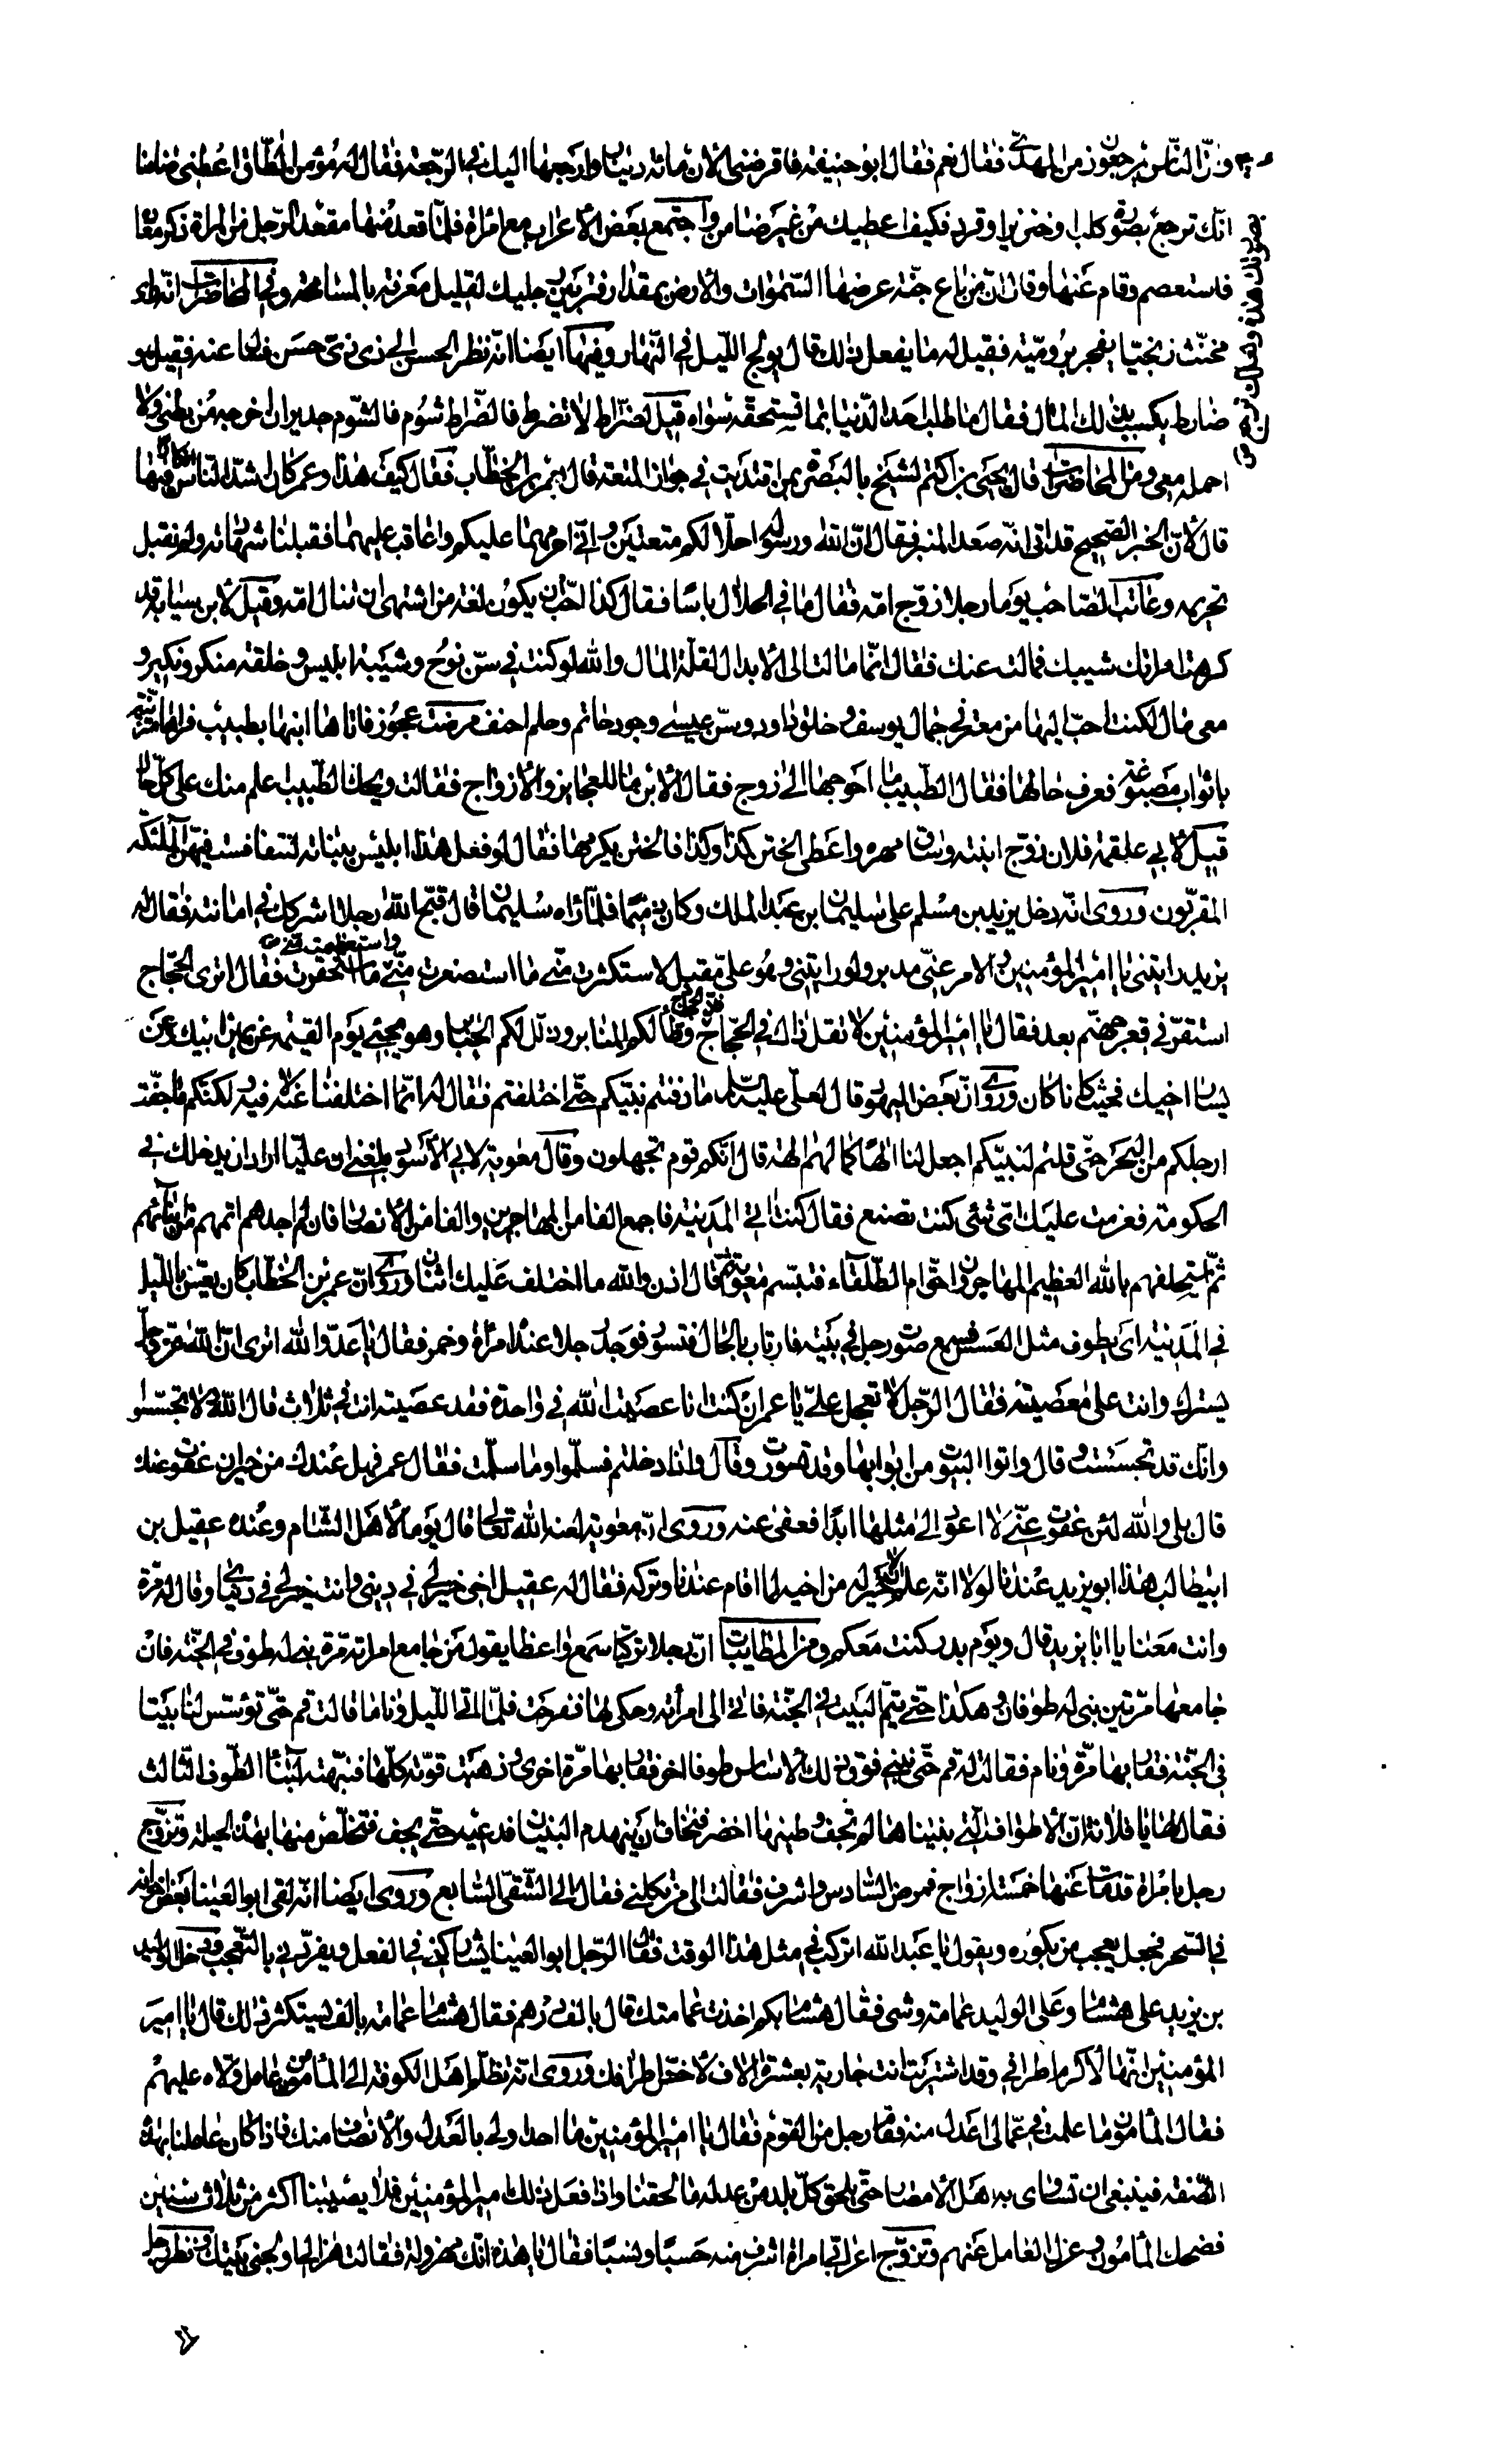 وانّ الناس يرجعون من المهدي فقال نعم فقال ابو حنيفة فاقرضني الان مائة دينار وارجعها اليك في الرجعة فقال له مؤمن الطاق اعطني ضامنا
انّك ترجع بصورة كلب او خنزير او قرد فكيف اعطيك من غير ضامن واجتمع بعض الأعراب مع امرأة فلمّا قعد منها مقعد الرجل من المراة ذكر معادا
فاستعصم وقام عنها وقال انّ من باع جنّة عرضها السّموات والأرض بمقدار فتر بين رجليك لقليل معرفته بالمساحة وفي المحاضرات انّه راى
مخنّث زنجيّا يفجر برُوميّة فقيل له ما يفعل ذلك قال يولج اللّيل في النّهار وفيها ايضا انّه نظر الحسن الى ذي زيّ حسن فسال عنه فقيل هو
ضارط يكسب بذلك المال فقال ما طلب احد الدّنيا بما تستحقّه سواه قيل لضرّاط لا تضرط فالضّراط شوم فقال الشّوم جدير ان اخرجه من بطني ولا
احمله معي ومن المحاضرات قال يحيى بن اكثم لشيخ بالبصرة بمن اقتديت في جواز المتعة قال بعمر بن الخطّاب فقال كيف هذا وعمر كان اشدّ الناس فيها
قال لأنّ الخبر الصّحيح قد اتى انّه صعد المنبر فقال انّ الله ورسوله احلّا لكم متعتين وانّي احرمهما عليكم واعاقب عليهما فقبلنا شهادته ولم نقبل
تحريمه وعاتب الصّاحب يوما رجلا زوّج امّه فقال ما في الحلال باس فقال كذا احبّ ان يكون لغة من اشتهى ان تنال امّه وقيل لأبن سيابة قد
كرهت امراتك شيبك فمالت عنك فقال انّما مالت الى الأبدال لقلّة المال والله لو كنت في سنّ نوح وشيبة ابليس وخلقة منكر ونكير و
معي مال لكنت احبّ اليها من مقتر في جمال يوسف وخلق داود وسنّ عيسى وجود حاتم وحلم احنف مرضت عجوز فاتاها ابنها بطبيب فراها متزيّنة
باثواب مصبوغة فعرف حالها فقال الطّبيب ما احوجها الى زوج فقال الأبن ما للعجايز والأزواج فقالت ويحك الطّبيب اعلم منك على كلّ حال
قيل لأبي علقمة فلان زوّج ابنته وساق مهره واعطى الختن كذا وكذا فالختن يكرمها فقال لو فعل هذا ابليس ببناته لتنافست فيهنّ الملائكة
المقرّبون وروى انّه دخل يزيد بن مسلم على سليمان بن عبد الملك وكان دميما فلمّا راه سليمان قال قبّح الله رجلا اشركك في امانته فقال له
يزيد رايتني يا امير المؤمنين والامر عنّي مدبر ولو رايتني وهو عليّ مقبل لاستكثرت منّي ما استصغرت واستعظمت منّي ما استحقرت فقال اترى الحجّاج
استقرّ في قعر جهنّم بعد فقال يا امير المؤمنين لا تقل ذلك في الحجّاج فان الحجاج وطّأ لكم المنابر وذلّل لكم الجبابرة وهو يجيئ يوم القيمة عن يمين ابيك وعن
يسار اخيك فحيث كانا كان وروى انّ بعض اليهود قال لعليّ عليه السلام ما دفنتم نبيّكم حتّى اختلفتم فقال له انّما اختلفنا عنه لا فيه ولكنّكم ما جفّت
ارجلكم من البحر حتّى قلتم لنبيّكم اجعل لنا الها كما لهم الهة قال انّكم قوم تجهلون وقال معوية لابي الأسود بلغني ان عليّا اراد ان يدخلك في
الحكومة فعزمت عليك اي شيئ كنت تصنع فقال كنت اتي المدينة فاجمع الفا من المهاجرين والفا من الأنصار فان لم اجدهم اتمهم من ابنائهم
ثمّ استحلفهم بالله العظيم المهاجرون احقّ ام الطّلقاء فتبسّم معوية ثم قال اذن والله ما اختلف عليك اثنان وروى انّ عمر بن الخطاب كان يعسّ بالليل
في المدينة اي يطوف مثل العسس فسمع صوت رجل في بيته فارتاب بالحال فتسوّر فوجد رجلا عنده امرأة وخمر فقال يا عدوّ الله اترى انّ الله عزّ وجلّ
يسترك وانت على معصيته فقال الرّجل لا تعجل عليّ يا عمر ان كنت انا عصيت الله في واحدة فقد عصيته انت في ثلاث قال الله ولا تجسّسوا
وانّك قد تجسّست وقال واتوا البيوت من ابوابها وقد تسورت وقال واذا دخلتم فسلّموا وما سلّمت فقال عمر فهل عندك من خير ان عفوت عنك
قال بلى والله لئن عفوت عنّي لا اعود الى مثلها ابدا فعفى عنه وروى انّ معوية لعنه الله تعالى قال يوما لأهل الشام وعنده عقيل بن
ابيطالب هذا ابو يزيد عندنا لولا انّه علم انّي خير له من اخيه لما اقام عندنا وتركه فقال له عقيل اخي خير لي في ديني وانت خير لي في دنياي وقال له مرة
وانت معنا يا ابا يزيد قال ويوم بدر كنت معكم ومن المطايبات انّ رجلا تركيّا سمع واعظا يقول من جامع امراته مرّة بنى له طوف في الجنّة فان
جامعها مرّتين بنى له طوفان وهكذا حتّى يتمّ البيت في الجنّة فاتى الى امرأته وحكى لها ففرحت فلمّا اتى الليل وناما قالت قم حتّى نؤسّس لنا بيتا
في الجنّة فقاربها مرّة ونام فقالت له قم حتّى نبني فوق ذلك الأساس طوفا اخر فقاربها مرّة اخرى وذهبت قوّته كلّها فنبّهته لبناء الطّوف الثالث
فقال لها يا فلانة انّ الأطواف الّتي بنيناها لم تجف وطينها اخضر فنخاف ان ينهدم البنيان فدعيه حتّى يجف فتخلّص منها بهذه الحيلة وتزوّج
رجل بامرأة قد مات عنها خمسة ازواج فمرض السّادس واشرف فقالت الى من تكلني فقال الى الشّقيّ السّابع وروى ايضا انّه لقى ابو العينا بعض اخوانه
في السّحر فجعل يعجب من بكوره ويقول يا عبد الله اتركب في مثل هذا الوقت فقال الرّجل ابو العينا يشاركني في الفعل ويفرّدني بالتّعجّب ودخل الوليد
بن يزيد على هشام وعلى الوليد عمامة وشى فقال هشام بكم اخذت عمامتك قال بالف درهم فقال هشام عمامة بالف يستكثر ذلك قال يا امير
المؤمنين انّها لأكرم اطرافي وقد اشتريت انت جارية بعشرة الاف لأخسّ اطرافك وروى انّه تظلّم اهل الكوفة الى المأمون من عامل ولّاه عليهم
فقال المأمون ما علمت في عمّالي اعدل منه فقام رجل من القوم فقال يا امير المؤمنين ما احد اولى بالعدل والأنصاف منك فاذا كان عاملنا بهذه
الصّفة فينبغي ان تساوى به اهل الأمصار حتّى يلحق كلّ بلد من عدله ما لحقنا واذا فعل ذلك امير المؤمنين فلا يصيبنا اكثر من ثلاث سنين
فضحك المأمون وعزل العامل عنهم وتزوّج اعرابي بامراة اشرف منه حسبا ونسبا فقال يا هذه انّك مهزولة فقالت هزالي اولجني بيتك ونظر رجل